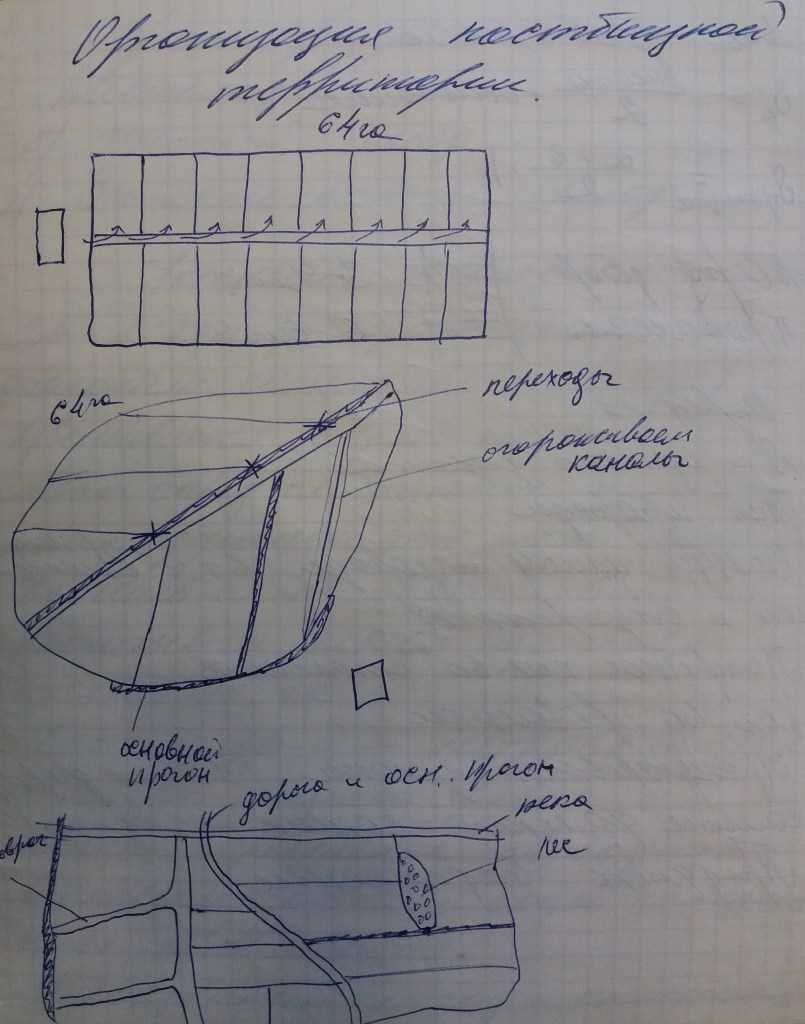 Организация пастбищной
территории.
64га
64га
переходы
огораживаем
каналы
основной
прогон
дорога и осн. прогон
река
овраг
лес